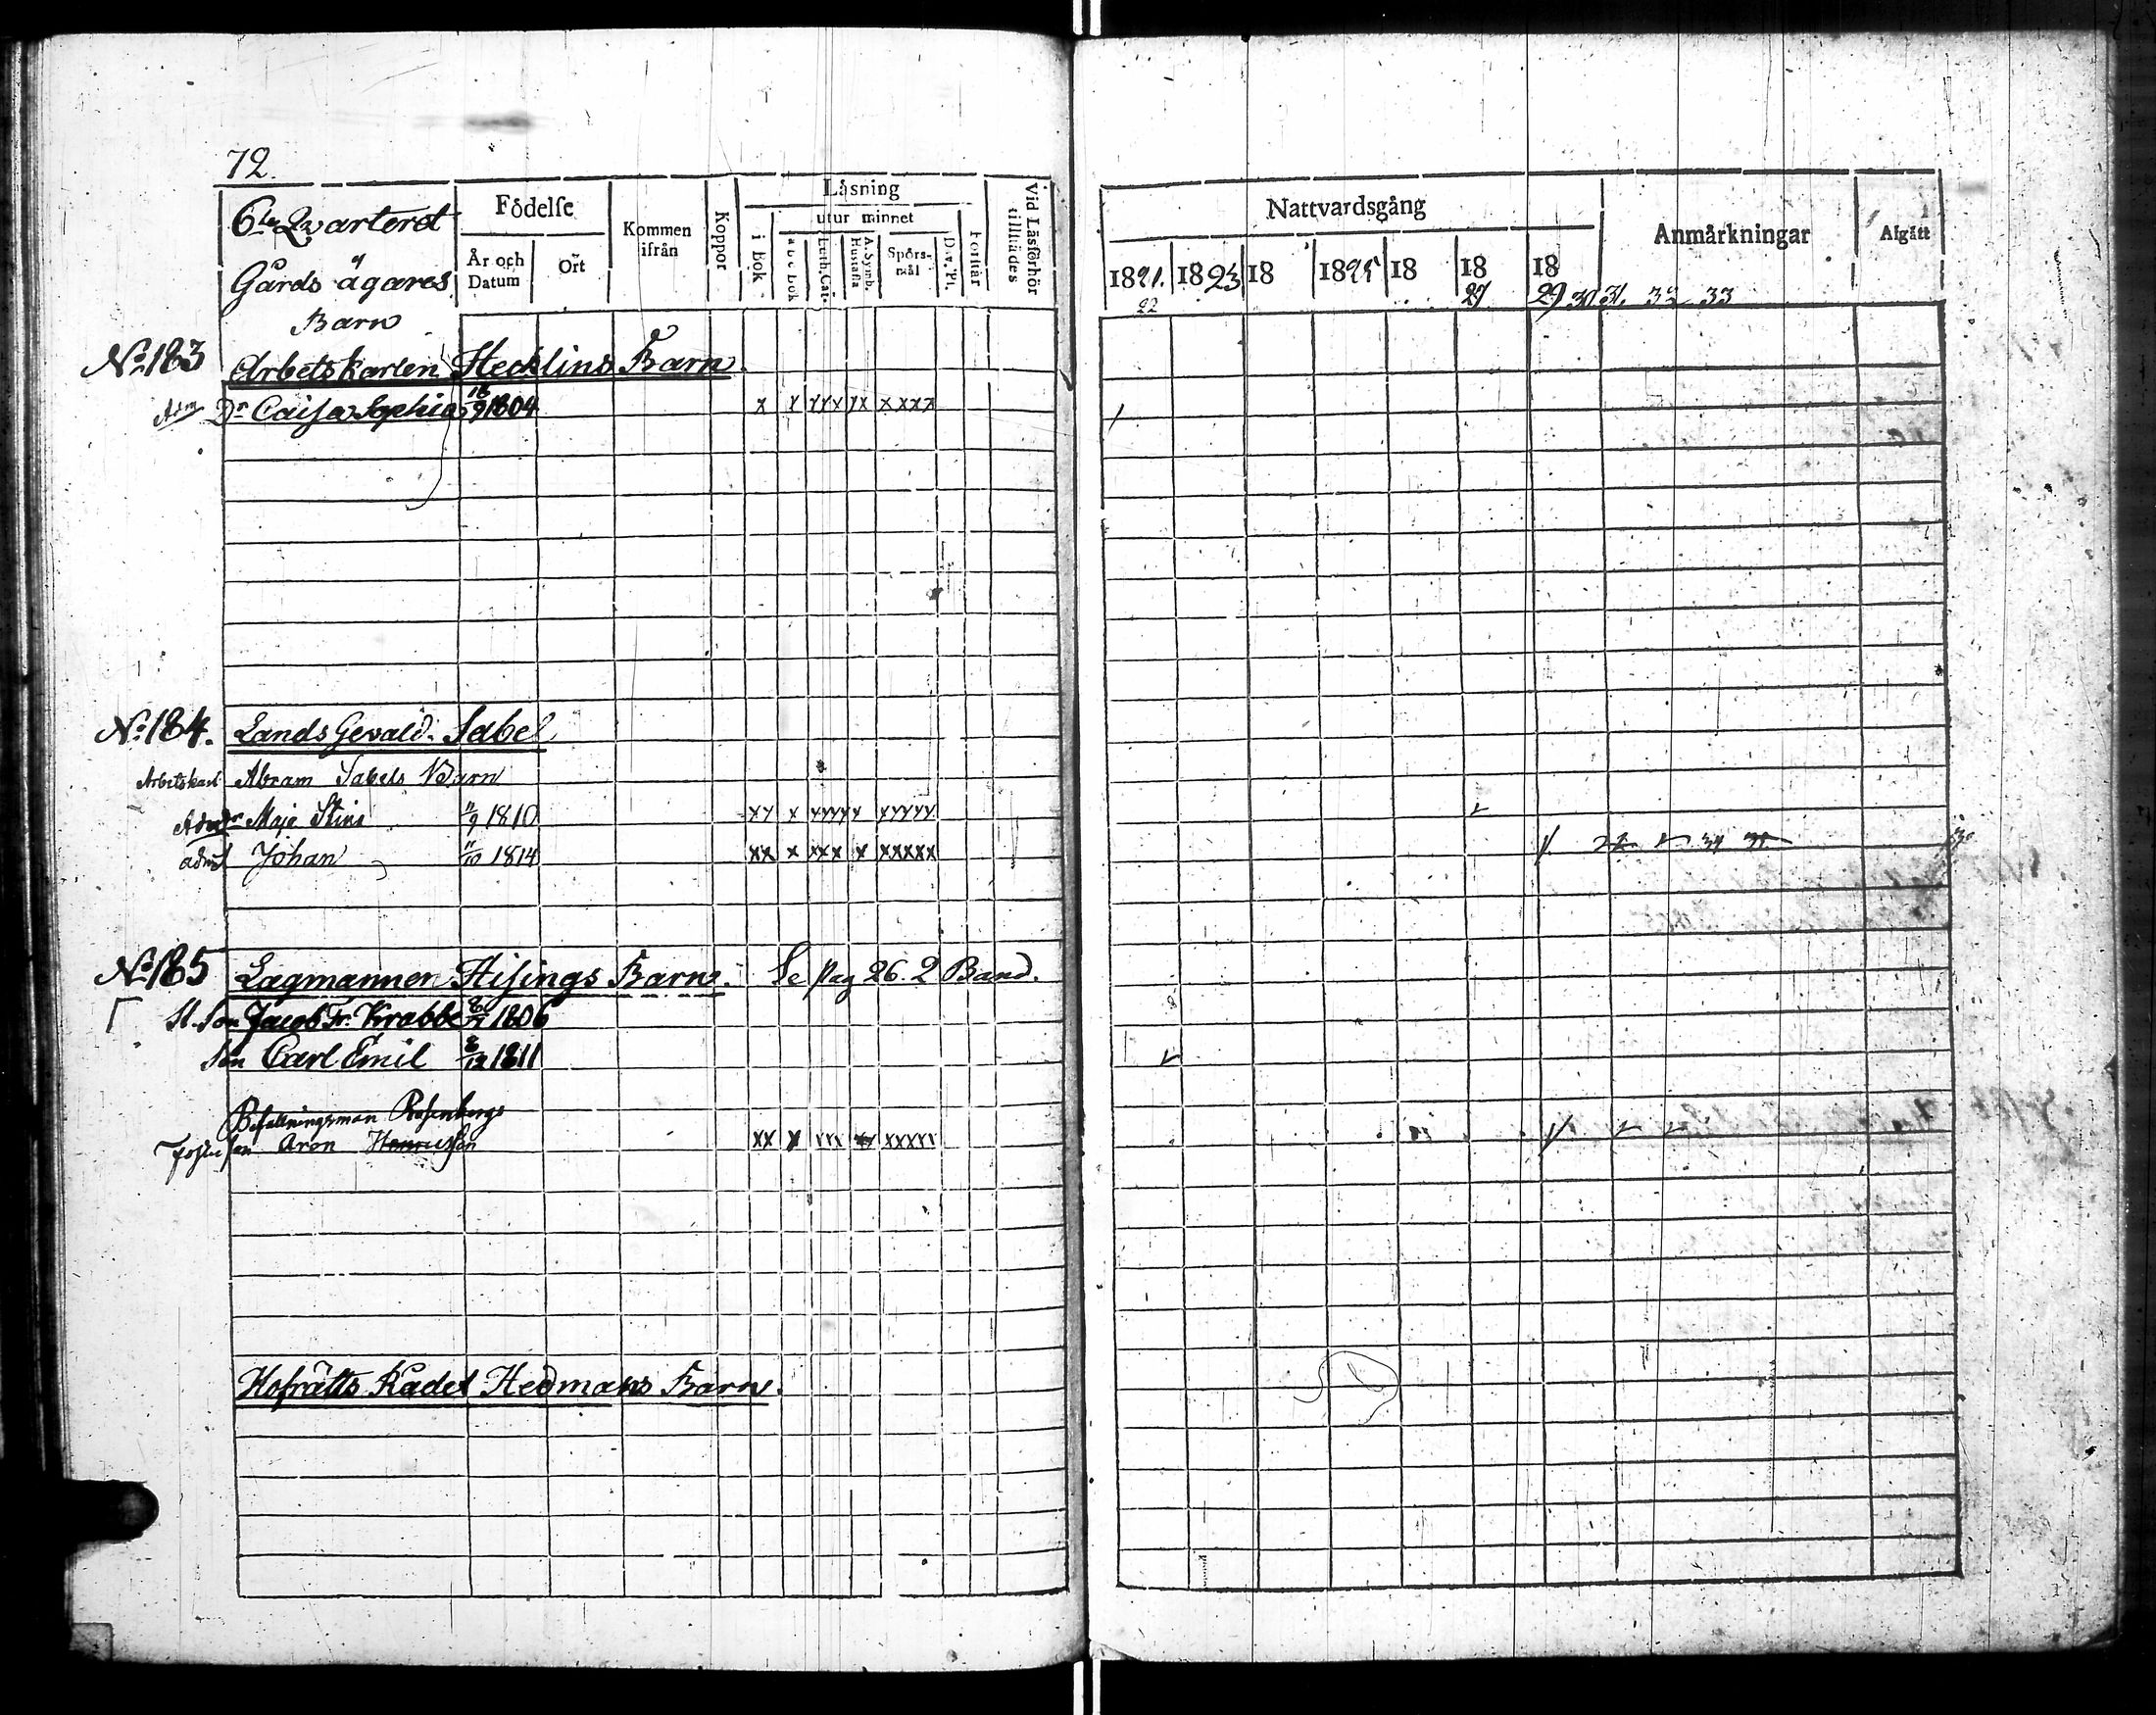 72.
6te Qvarteret
Gårds ägares
Barn
Födelse
År och Datum
Ort
Kommen ifrån
Koppor
Läsning
i Bok
utur minnet
a b c bok
Luth. Cat.
A. Symb. Hustafla
Spörsmål
Dav. Ps.
Förstår
Vid Läsförhör tillstädes
Nattvardsgång
1821. 22
1823
18
1825
18
18 27
18 29 30 31. 32 33
Anmärkningar
Afgått
No 183 Arbetskarlen Hecklins Barn.
Adm Dr Caisa Sophia 18/9 1804 x x xxx xx xxxx
No 184. Lands Gevald. Sabel
Arbetskarl Abram Sabels Barn
Adm dr Maja Stina 11/9 1810 xx x xxxxx xxxxx
adm Johan 11/10 1814 xx x xxx x xxxxx 34
No 185 Lagmannen Hisings Barn. Se pag 26. 2 Band.
St. Son Jacob Fr. Krabbe 1806
Son Carl Emil 8/12 1811
Befallningsman Rosenbergs
Foster son Aron Henricsson xx x xxx xx xxxxx
Hofrätts Rådet Hedmans Barn.